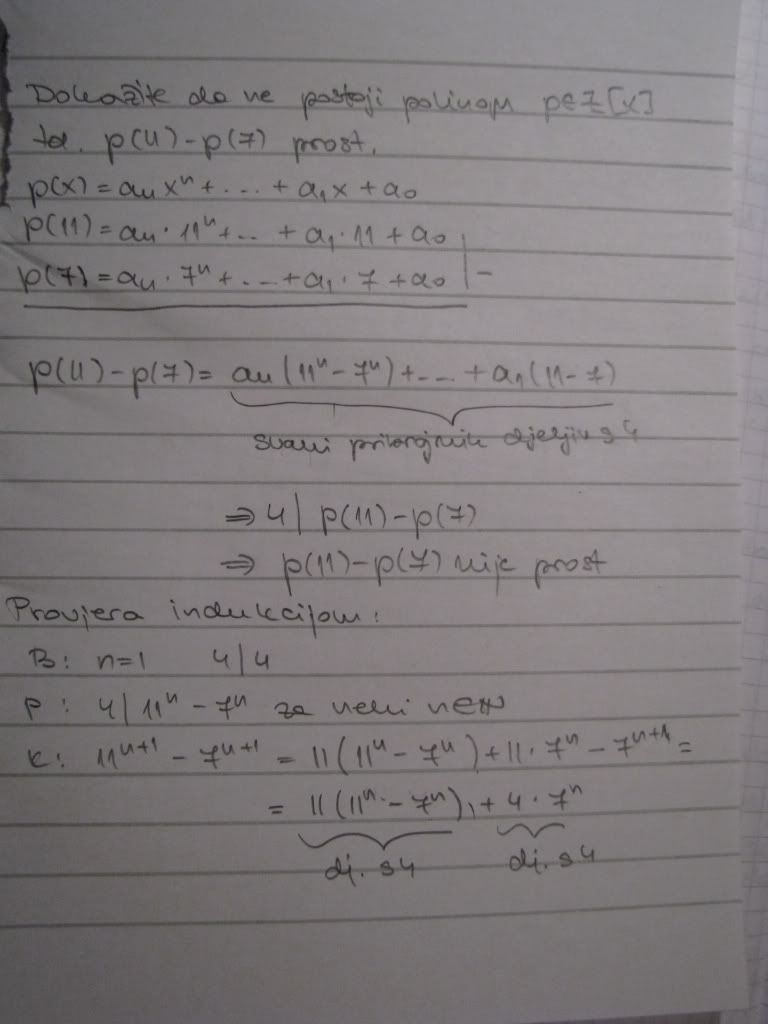 Dokažite da ne postoji polinom p∈Z[x]
td. p(11)-p(7) prost.
p(x)=aₙxⁿ+...+a₁x+a₀
p(11)=aₙ·11ⁿ+...+a₁·11+a₀
p(7)=aₙ·7ⁿ+...+a₁·7+a₀ | -
p(11)-p(7)=aₙ(11ⁿ-7ⁿ)+...+a₁(11-7)
svaki pribrojnik djeljiv s 4
⇒ 4 | p(11)-p(7)
⇒ p(11)-p(7) nije prost
Provjera indukcijom:
B: n=1 4|4
P: 4|11ⁿ-7ⁿ za neki n∈N
K: 11ⁿ⁺¹-7ⁿ⁺¹=11(11ⁿ-7ⁿ)+11·7ⁿ-7ⁿ⁺¹=
=11(11ⁿ-7ⁿ)+4·7ⁿ
dj. s 4 dj. s 4